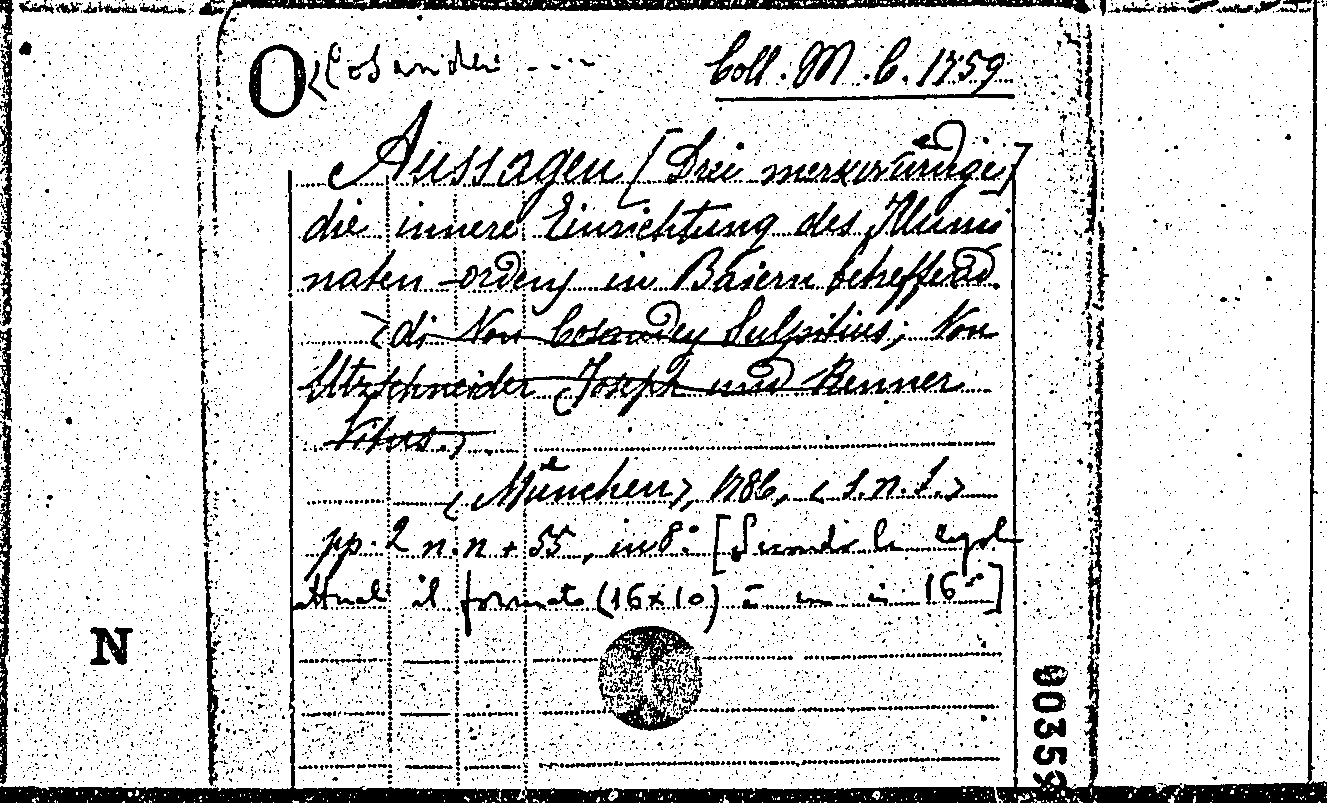 O <Cosandei ---- Coll. M. C. 1759
Aussagen [Drei merkwürdige]
die innere Einrichtung des Illumi
naten-ordens in Baiern betreffend.
di Von Cosandey Sulpitius; Von
Utzschneider Joseph und Renner
Vitus.
<München>, 1786, <s.n.t.>
pp. 2 n.n + 55, in 8.° [Secondo la
il formato (16x10) è in 16°]
N
00359